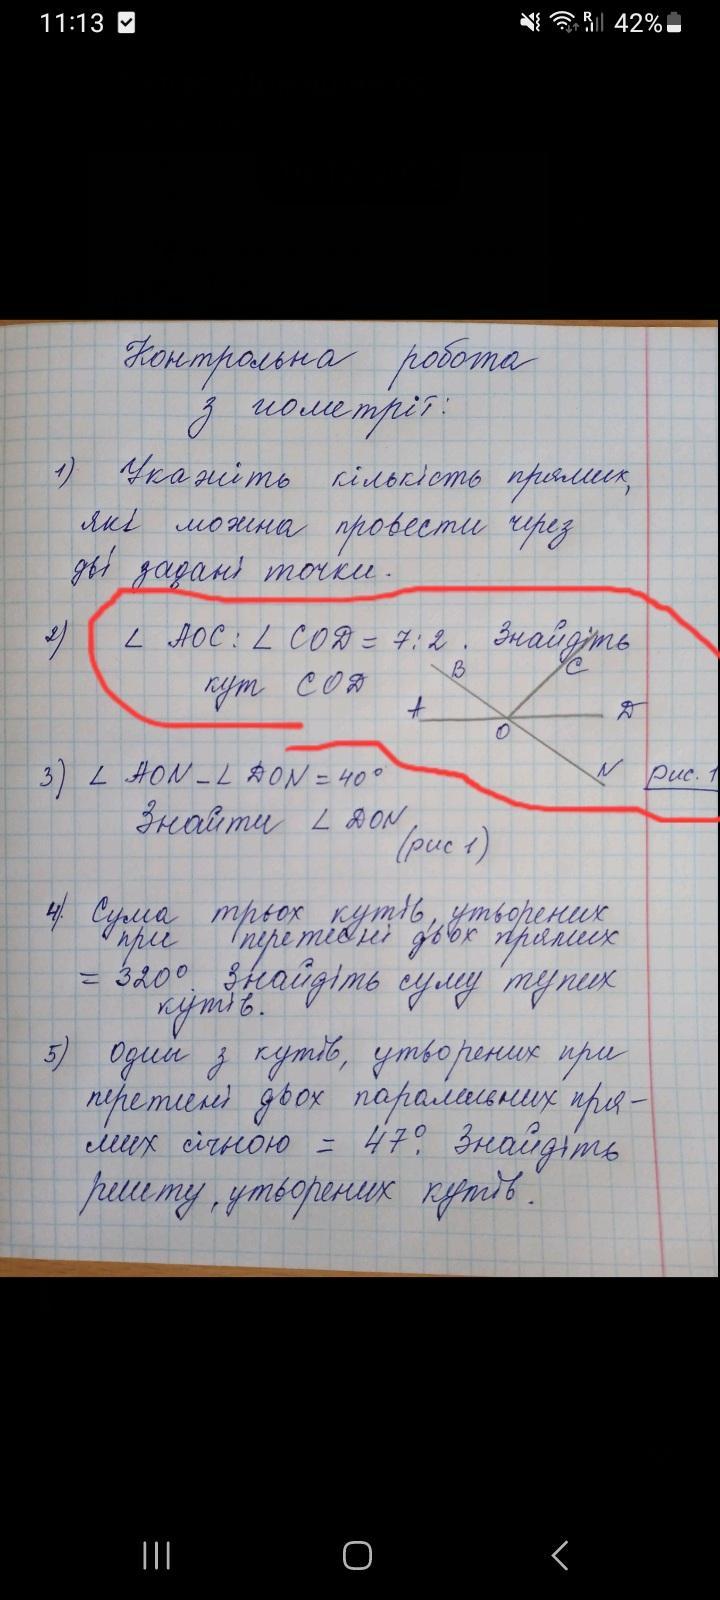 11:13
R
42%
Контрольна робота
з геометрії:
1) Укажіть кількість прямих,
які можна провести через
дві задані точки.
2) ∠ AOC : ∠ COD = 7:2. Знайдіть
кут COD
B
C
A
D
O
N
рис. 1
3) ∠ AON - ∠ DON = 40°
Знайти ∠ DON
(рис 1)
4) Сума трьох кутів, утворених
при перетені двох прямих
= 320°. Знайдіть суму тупих
кутів.
5) Один з кутів, утворених при
перетені двох паралельних пря-
мих січною = 47°. Знайдіть
решту, утворених кутів.